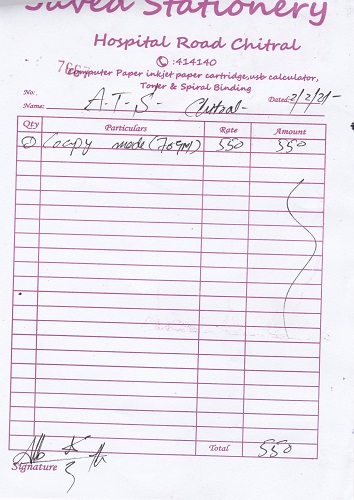 Javed Stationery
Hospital Road Chitral
:414140
Computer Paper inkjet paper cartridge,usb calculator,
Toner & Spiral Binding
No:
Name: A.T.S- Chitral- Dated: 2/2/21-
Qty Particulars Rate Amount
(70gm) 550 550
Total 550
Signature